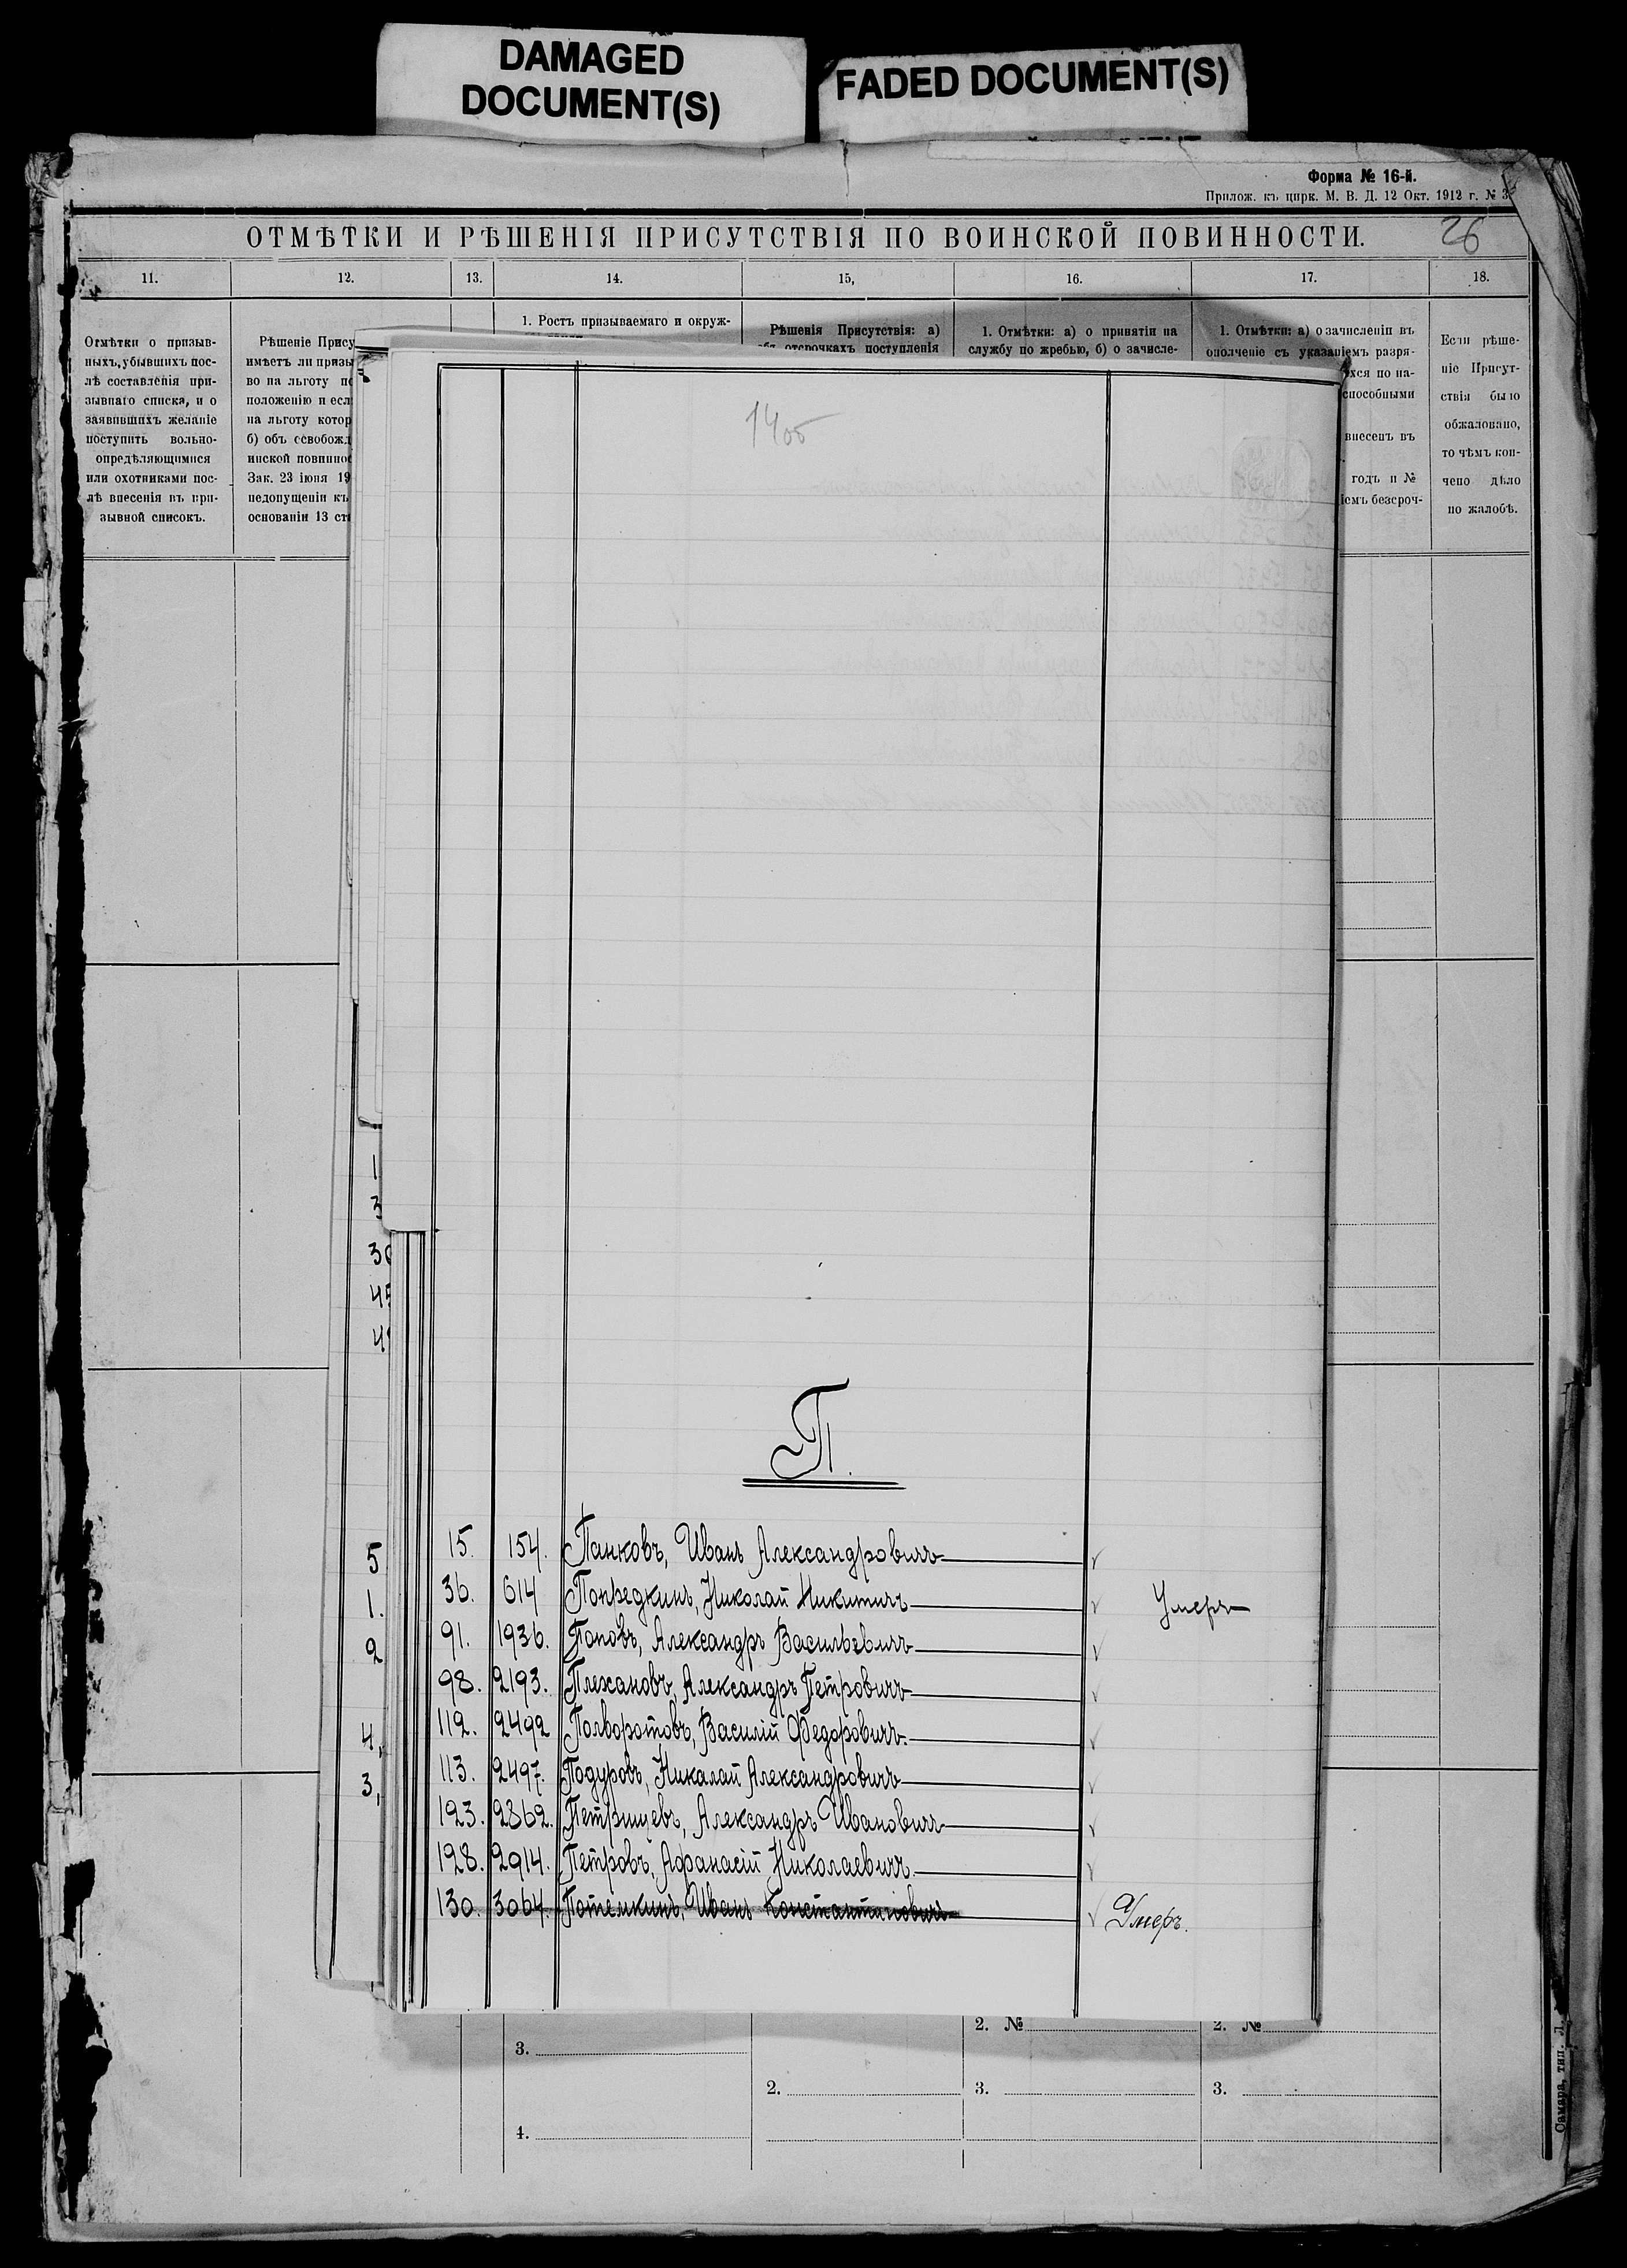 DAMAGED
DOCUMENT(S)
FADED DOCUMENT(S)
Форма № 16-й.
Прилож. къ цирк. М. В. Д. 12 Окт. 1912 г. № 3
26
ОТМѢТКИ И РѢШЕНІЯ ПРИСУТСТВІЯ ПО ВОИНСКОЙ ПОВИННОСТИ.
11. 12. 13. 14. 15, 16. 17. 18.
Отмѣтки о призыв-
ныхъ, убывшихъ пос-
лѣ составленія при-
зывнаго списка, и о
заявившихъ желаніе
поступить вольно-
опредѣляющимися
или охотниками пос-
лѣ внесенія въ при-
зывной списокъ.
Рѣшеніе Прису
имѣетъ ли призы
во на льготу по
положенію и есл
на льготу котор
б) объ освобожд
инской повиннос
Зак. 23 іюня 19
недопущеніи къ
основаніи 13 ст
1. Ростъ призываемаго и окруж-
Рѣшенія Присутствія: а)
объ отсрочкахъ поступленія
1. Отмѣтки: а) о принятіи на
службу по жребью, б) о зачисле-
1. Отмѣтки: а) о зачисленіи въ
ополченіе съ указаніемъ разря-
хся по на-
способными
внесенъ въ
годъ и №
іемъ безсроч-
Если рѣше-
ніе Присут-
ствія было
обжаловано,
то чѣмъ кон-
чено дѣло
по жалобѣ.
П.
15. 154. Панковъ, Иванъ Александровичъ
36. 614 Попредкинъ, Николай Никитичъ Умеръ
91. 1936. Поповъ, Александръ Васильевичъ
98. 2193. Плехановъ, Александръ Петровичъ
112. 2492 Полворотовъ, Василій Федоровичъ.
113. 2497. Подуровъ, Николай Александровичъ
123. 2862. Петрищевъ, Александръ Ивановичъ
128. 2914. Петровъ, Афанасій Николаевичъ.
130. 3064. Потемкинъ, Иванъ Константиновичъ Умеръ.
5
1.
2
4,
3,
3.
4.
2.
2. №
3.
2. №
3.
Самара, тип. Л.